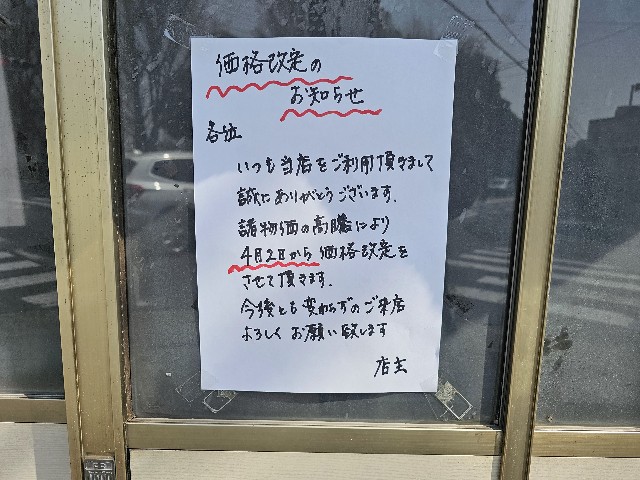 価格改定の
お知らせ
各位
いつも当店をご利用頂きまして
誠にありがとうございます.
諸物価の高騰により
4月2日から価格改定を
させて頂きます.
今後とも変わらずのご来店
よろしくお願い致します
店主